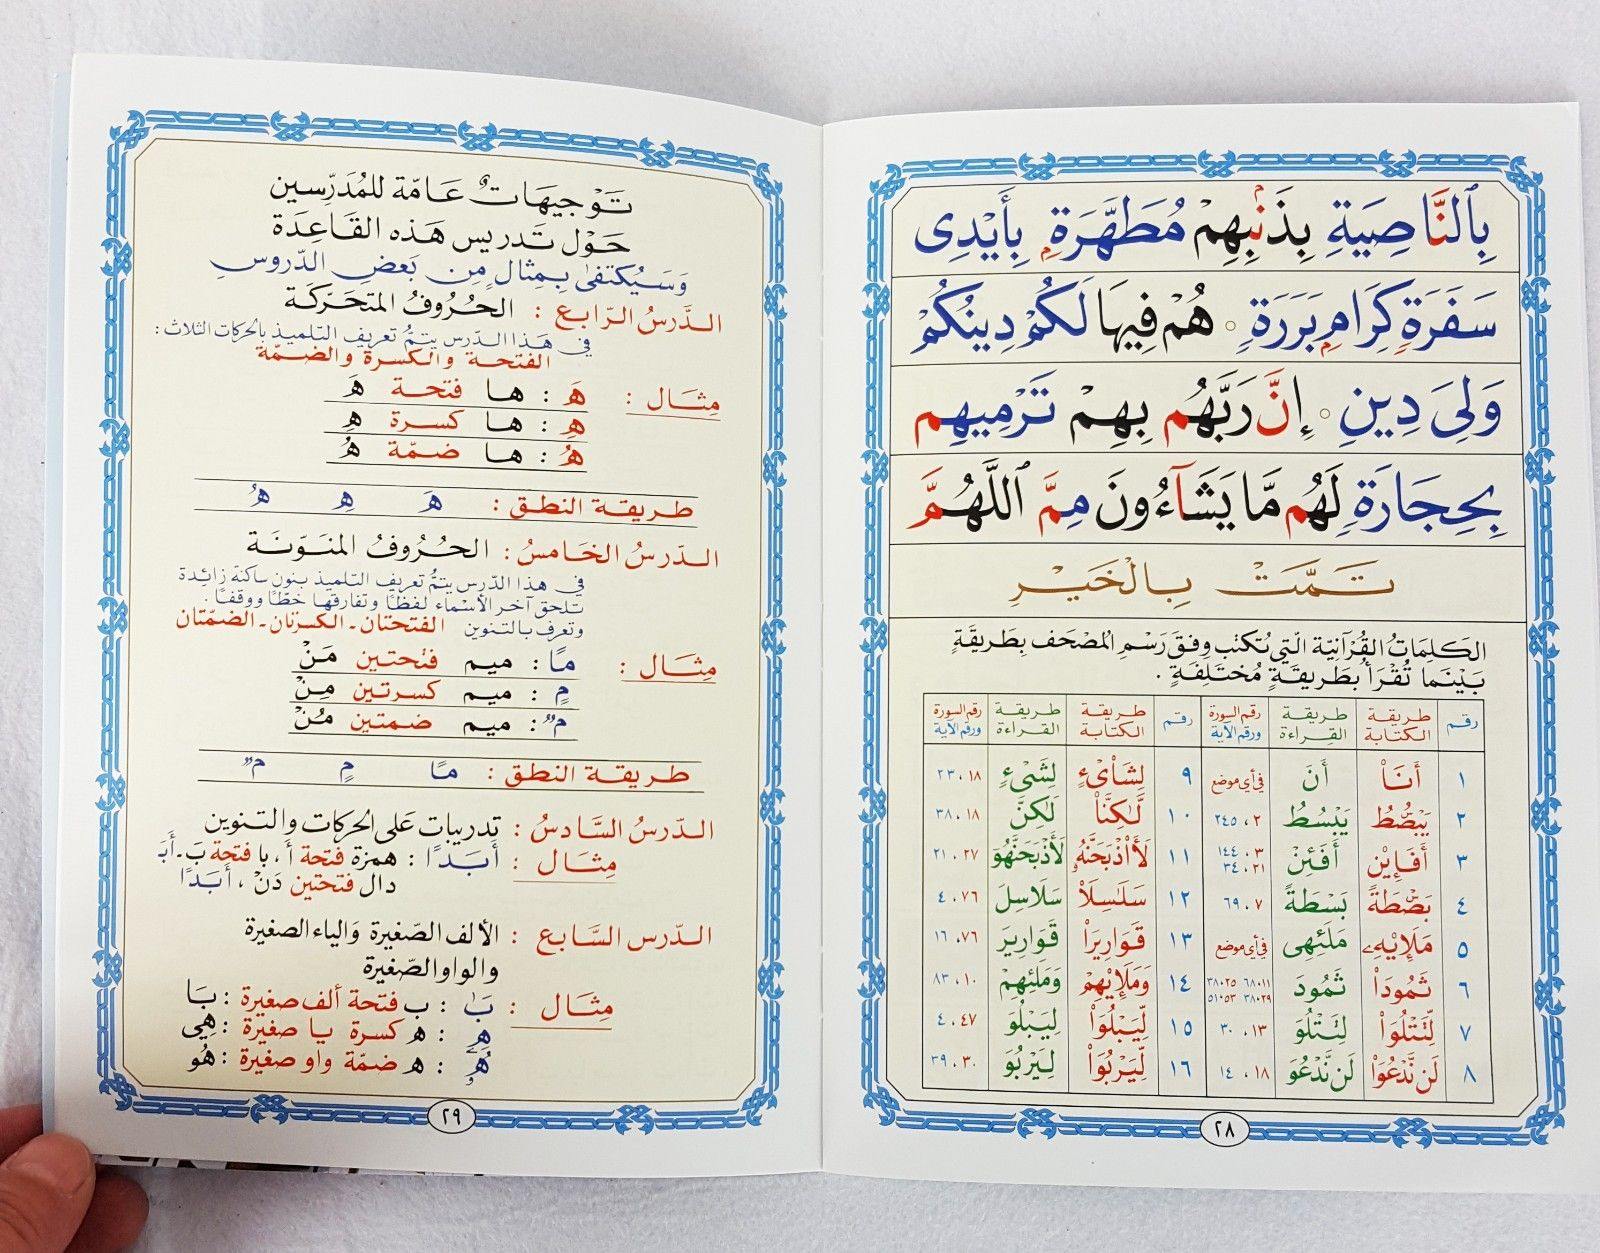 بِٱلنَّاصِيَةِ بِذَنۢبِهِمْ مُطَهَّرَةٍۭ بِأَيْدِى
سَفَرَةٍ كِرَامٍۭ بَرَرَةٍ ○ هُمْ فِيهَا لَكُمْ دِينُكُمْ
وَلِىَ دِينِ ○ إِنَّ رَبَّهُم بِهِمْ تَرْمِيهِم
بِحِجَارَةٍ لَهُم مَّا يَشَآءُونَ مِمَّ ٱللَّهُمَّ
تَمَّتْ بِالْخَيْرِ
الكَلِمَاتُ القُرْآنِيّة الّتي تُكتَب وِفقَ رَسْمِ المُصْحَف بِطَرِيقَةٍ
بَيْنَمَا تُقْرَأُ بِطَرِيقَةٍ مُخْتَلِفَةٍ .
رقم طريقة الكتابة طريقة القراءة رقم السورة ورقم الآية رقم طريقة الكتابة طريقة القراءة رقم السورة ورقم الآية
١ أَنَا۠ أَنَ في أي موضع ٩ لِشَا۟ىْءٍ لِشَىْءٍ ١٨، ٢٣
٢ يَبْصُۜطُ يَبْسُطُ ٢، ٢٤٥ ١٠ لَّٰكِنَّا۠ لَٰكِنَّ ١٨، ٣٨
٣ أَفَإِيْن أَفَئِنْ ٣، ١٤٤ ٢١، ٣٤ ١١ لَأَا۟ذْبَحَنَّهُۥ لَأَذْبَحَنَّهُوَ ٢٧، ٢١
٤ بَصْۜطَةً بَسْطَةً ٧، ٦٩ ١٢ سَلَٰسِلَا۟ سَلَاسِلَ ٧٦، ٤
٥ مَلَإِيْهِۦ مَلَئِهِى في أي موضع ١٣ قَوَارِيرَا۟ قَوَارِيرَ ٧٦، ١٦
٦ ثَمُودَا۟ ثَمُودَ ١١، ٦٨ ٢٥، ٣٨ ٢٩، ٣٨ ٥٣، ٥١ ١٤ وَمَلَإِيْهِمْ وَمَلَئِهِمْ ١٠، ٨٣
٧ لِّتَتْلُوَا۟ لِتَتْلُوَ ١٣، ٣٠ ١٥ لِّيَبْلُوَا۟ لِيَبْلُوَ ٤٧، ٤
٨ لَن نَّدْعُوَا۟ لَن نَّدْعُوَ ١٨، ١٤ ١٦ لِّيَرْبُوَا۟ لِيَرْبُوَ ٣٠، ٣٩
٢٨
تَوْجِيهَاتٌ عَامّة للمُدَرِّسِين
حَوْل تَدريس هَذه القَاعِدَة
وَسَيُكتفىٰ بمِثالٍ مِن بَعض الدّروسِ
الدّرسُ الرّابع : الحُرُوفُ المتحَرّكَة
في هَذا الدّرس يتمُّ تعريف التلميذ بالحركات الثلاث :
الفتحة والكسرة والضمّة
مِثَال : هَ : ها فتحة هَ
هِ : ها كسرة هِ
هُ : ها ضمّة هُ
طريقة النطق : هَ هِ هُ
الدّرسُ الخَامسُ : الحُرُوفُ المنوّنَة
في هذا الدّرس يتمُّ تعريف التلميذ بنون ساكنة زائدة
تلحق آخر الأسْماء لفظًا وتفارقها خطًّا ووقفًا .
وتعرف بالتنوين الفتحتان ـ الكسرتان ـ الضمّتان
مِثَال : مًا : ميم فتحتين مَنْ
مٍ : ميم كسرتين مِنْ
مٌ : ميم ضمتين مُنْ
طريقة النطق : مًا مٍ مٌ
الدّرسُ السَّادسُ : تدريبات عَلى الحركات والتنوين
مِثَال : أَبَدًا : همزة فتحة أَ ، با فتحة بَ ـ أَبَ
دال فتحتين دَنْ ، أَبَدًا
الدّرس السَّابع : الألف الصّغيرة وَالياء الصغيرة
والواو الصّغيرة
مِثَال : بَٰ : ب فتحة ألف صغيرة : بَا
هِۦ : ه كسرة يا صغيرة : هِي
هُۥ : ه ضمّة واو صغيرة : هُو
٢٩